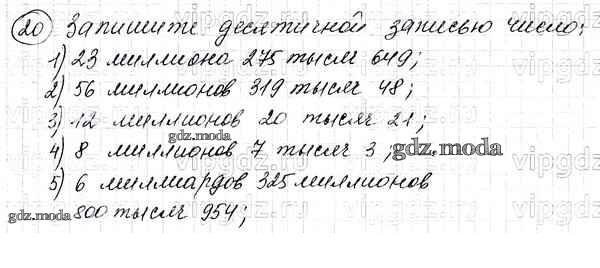 20 Запишите десятичной записью число:
1) 23 миллиона 275 тысяч 649;
2) 56 миллионов 319 тысяч 48;
3) 12 миллионов 20 тысяч 21;
gdz.moda
4) 8 миллионов 7 тысяч 3;
gdz.moda
5) 6 миллиардов 325 миллионов
gdz.moda
800 тысяч 954;
vipgdz.ru